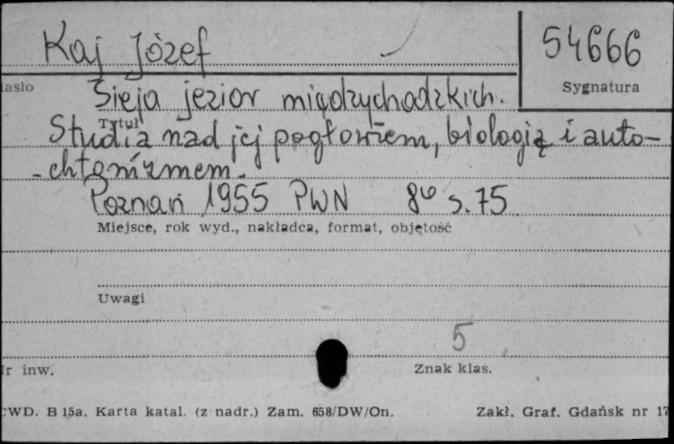 Kaj Józef
54666
Sygnatura
Sieja jezior międzychodzkich.
Tytuł
Studia nad jej pogłowiem, biologią i auto-
-chtonizmem.
Poznań 1955 PWN 8° s. 75
Miejsce, rok wyd., nakładca, format, objętość
Uwagi
5
Nr inw.
Znak klas.
CWD. B 15a. Karta katal. (z nadr.) Zam. 658/DW/On. Zakł. Graf. Gdańsk nr 17